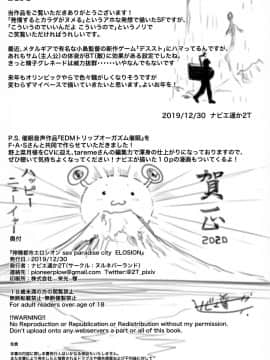 当作品をご覧いただきありがとうございます！
「発情するとカラダがヌメる」というアホな発想で描いたSFですが、
「こういうのでいいんだよ、こういうので」というノリで
ご笑覧いただければうれしいです。
最近、メタルギアで有名な小島監督の新作ゲーム「デススト」にハマってるんですが、
あれもサム（主人公）の体液がBT（敵）に効果がある設定でしたね。
きっと精子グレネードは威力抜群・・・いやなんでもないです
来年もオリンピックやらで色々騒がしくなりそうですが
変わらずマイペースで描いていきたいと思います。よいお年を！
2019/12/30 ナビエ遥か2T
P.S. 催眠音声作品『EDMトリップオーガズム催眠』を
F・A・Sさんと共同で作らせていただきました！
野上菜月様をCVに迎え、taremeさんの編集力で渾身の仕上がりになっておりますので、
ぜひ聴いて気持ちよくなってください！ナビエが描いた10pの漫画もついてくるよ！
賀正
2020
ハッピー
ニューイヤー
奥付
発行日：2019/12/30
発行者：ナビエ遥か2T（サークル：ヌルネバーランド）
連絡先：pioneerplow@gmail.com Twitter@2T_pixiv
印刷所：株式会社 栄光 様
18歳未満の方の閲覧禁止
無断転載禁止・無断複製禁止
For adult readers over age of 18
!!WARNING!!
No Reproduction or Republication or Redistribution without my permission.
Don't upload onto any webservers a part or all of this book.